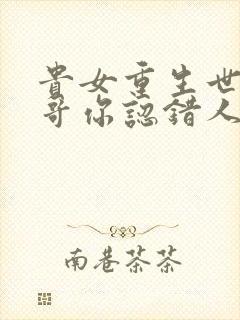 貴女重生世
哥你認錯人
南巷茶茶